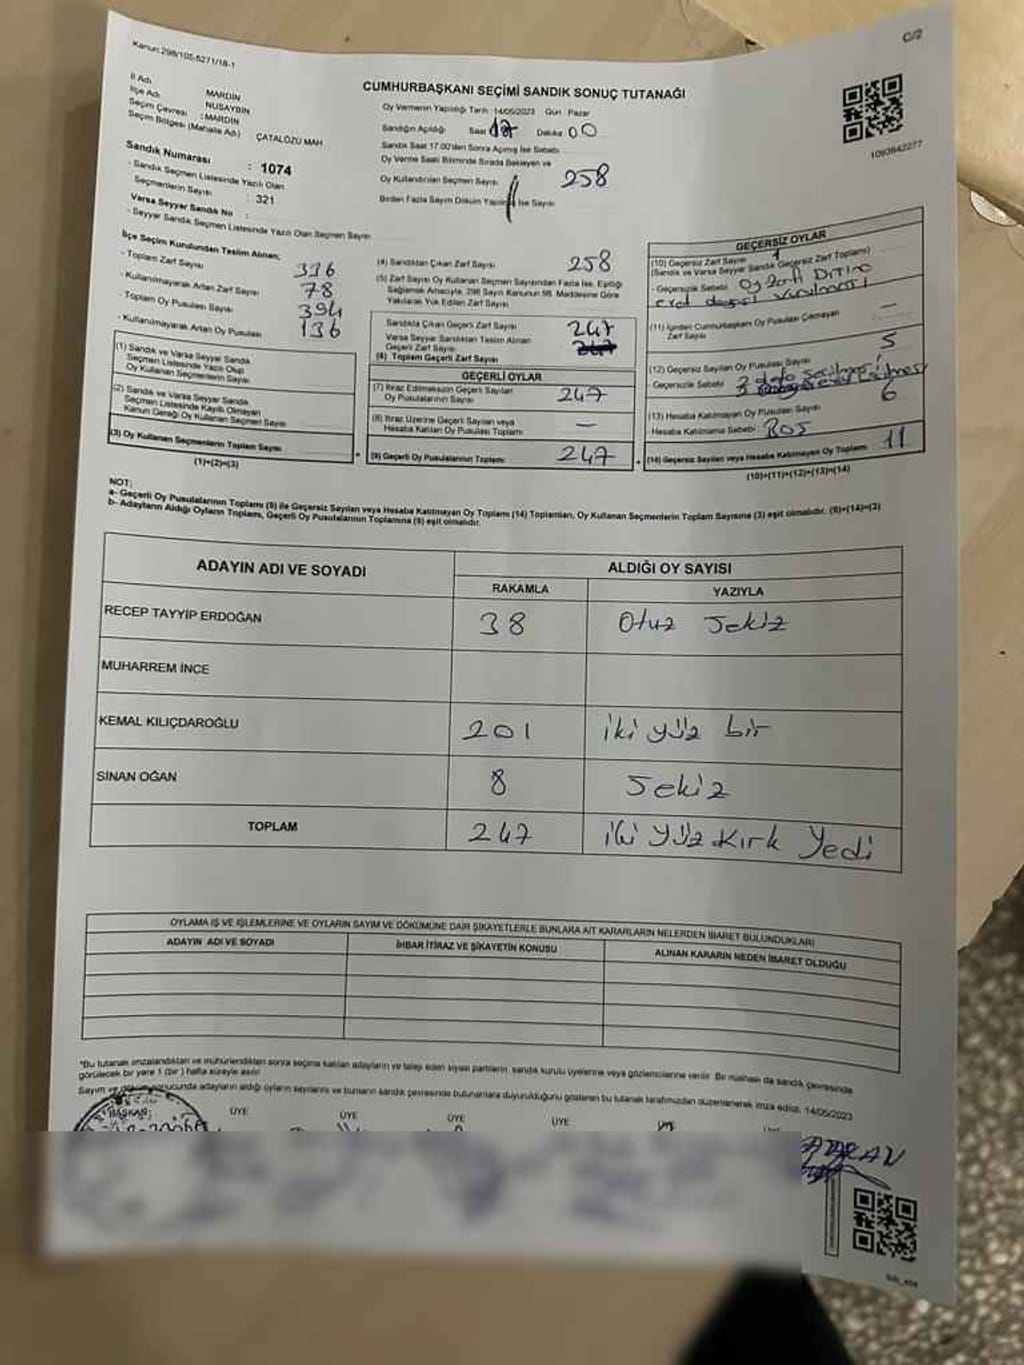 C/2
Kanun:298/105,5271/18-1
CUMHURBAŞKANI SEÇİMİ SANDIK SONUÇ TUTANAĞI
İl Adı MARDİN
İlçe Adı NUSAYBİN
Seçim Çevresi : MARDİN
Seçim Bölgesi (Mahalle Adı) ÇATALÖZÜ MAH
Sandık Numarası : 1074
- Sandık Seçmen Listesinde Yazılı Olan
Seçmenlerin Sayısı : 321
Varsa Seyyar Sandık No :
- Seyyar Sandık Seçmen Listesinde Yazılı Olan Seçmen Sayısı
Oy Vermenin Yapıldığı Tarih: 14/05/2023 Gün: Pazar
Sandığın Açıldığı Saat 17 Dakika 00
Sandık Saat 17.00'den Sonra Açılmış İse Sebebi
Oy Verme Saati Bitiminde Sırada Bekleyen ve
Oy Kullandırılan Seçmen Sayısı 258
Birden Fazla Sayım Döküm Yapılmış İse Sayısı
1093842277
İlçe Seçim Kurulundan Teslim Alınan;
- Toplam Zarf Sayısı 336
- Kullanılmayarak Artan Zarf Sayısı 78
- Toplam Oy Pusulası Sayısı 394
- Kullanılmayarak Artan Oy Pusulası 136
(1) Sandık ve Varsa Seyyar Sandık
Seçmen Listesinde Yazılı Olup
Oy Kullanan Seçmenlerin Sayısı
(2) Sandık ve Varsa Seyyar Sandık
Seçmen Listesinde Kayıtlı Olmayan
Kanun Gereği Oy Kullanan Seçmen Sayısı
(3) Oy Kullanan Seçmenlerin Toplam Sayısı
(1)+(2)=(3)
(4) Sandıktan Çıkan Zarf Sayısı 258
(5) Zarf Sayısı Oy Kullanan Seçmen Sayısından Fazla İse, Eşitliği
Sağlamak Amacıyla, 298 Sayılı Kanunun 98. Maddesine Göre
Yakılarak Yok Edilen Zarf Sayısı
Sandıkta Çıkan Geçerli Zarf Sayısı 247
Varsa Seyyar Sandıktan Teslim Alınan
Geçerli Zarf Sayısı
(6) Toplam Geçerli Zarf Sayısı
GEÇERLİ OYLAR
(7) İtiraz Edilmeksizin Geçerli Sayılan
Oy Pusulalarının Sayısı 247
(8) İtiraz Üzerine Geçerli Sayılan veya
Hesaba Katılan Oy Pusulası Toplamı —
(9) Geçerli Oy Pusulalarının Toplamı 247
GEÇERSİZ OYLAR
(10) Geçersiz Zarf Sayısı
(Sandık ve Varsa Seyyar Sandık Geçersiz Zarf Toplamı)
- Geçersizlik Sebebi
(11) İçinden Cumhurbaşkanı Oy Pusulası Çıkmayan
Zarf Sayısı —
(12) Geçersiz Sayılan Oy Pusulası Sayısı 5
- Geçersizlik Sebebi
(13) Hesaba Katılmayan Oy Pusulası Sayısı 6
Hesaba Katılmama Sebebi BOŞ
(14) Geçersiz Sayılan veya Hesaba Katılmayan Oy Toplamı 11
(10)+(11)+(12)+(13)=(14)
NOT:
a- Geçerli Oy Pusulalarının Toplamı (9) ile Geçersiz Sayılan veya Hesaba Katılmayan Oy Toplamı (14) Toplamları, Oy Kullanan Seçmenlerin Toplam Sayısına (3) eşit olmalıdır. (9)+(14)=(3)
b- Adayların Aldığı Oyların Toplamı, Geçerli Oy Pusulalarının Toplamına (9) eşit olmalıdır.
ADAYIN ADI VE SOYADI
ALDIĞI OY SAYISI
RAKAMLA YAZIYLA
RECEP TAYYİP ERDOĞAN 38 Otuz Sekiz
MUHARREM İNCE
KEMAL KILIÇDAROĞLU 201 iki yüz bir
SİNAN OĞAN 8 Sekiz
TOPLAM 247 iki yüz kırk Yedi
OYLAMA İŞ VE İŞLEMLERİNE VE OYLARIN SAYIM VE DÖKÜMÜNE DAİR ŞİKAYETLERLE BUNLARA AİT KARARLARIN NELERDEN İBARET BULUNDUKLARI
ADAYIN ADI VE SOYADI İHBAR İTİRAZ VE ŞİKAYETİN KONUSU ALINAN KARARIN NEDEN İBARET OLDUĞU
*Bu tutanak imzalandıktan ve mühürlendikten sonra seçime katılan adayların ve talep eden siyasi partilerin, sandık kurulu üyelerine veya gözlemcilerine verilir. Bir nüshası da sandık çevresinde
görülecek bir yere 1 (bir) hafta süreyle asılır.
Sayım ve döküm sonucunda adayların aldığı oyların sayılarını ve bunların sandık çevresinde bulunanlara duyurulduğunu gösteren bu tutanak tarafımızdan düzenlenerek imza edildi. 14/05/2023
BAŞKAN ÜYE ÜYE ÜYE ÜYE